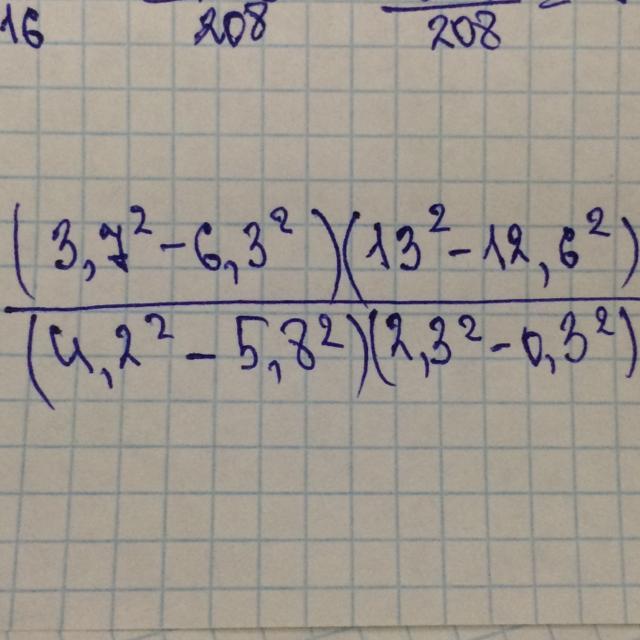 16 208 208
(3,7² - 6,3²)(13² - 12,6²)
(4,2² - 5,8²)(2,3² - 0,3²)